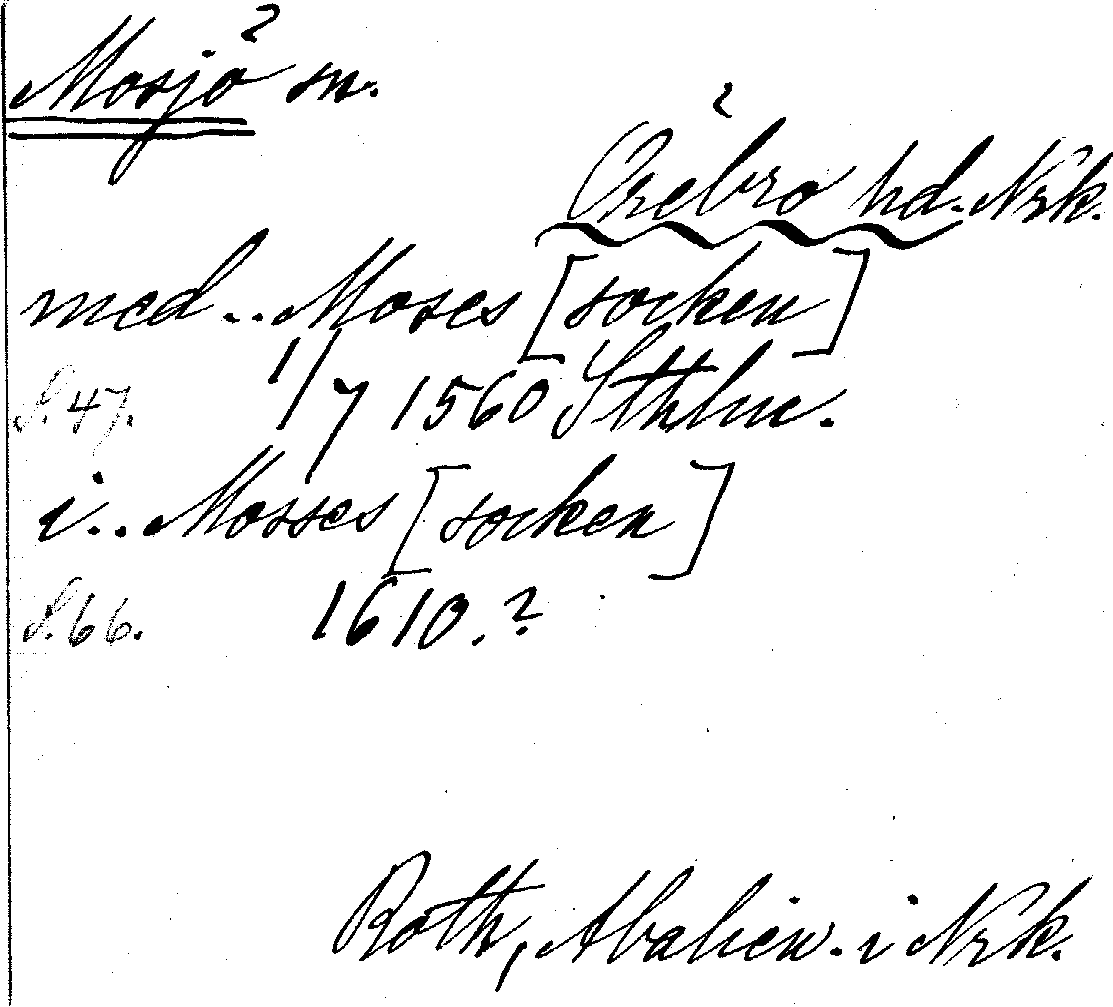 Mosjö sn.
Örebro hd. Nrk.
med .. Moses [socken]
S. 47. 1/7 1560 Sthlm.
i .. Mosses [socken]
S. 66. 1610.?
Roth, Abalien. i Nrk.